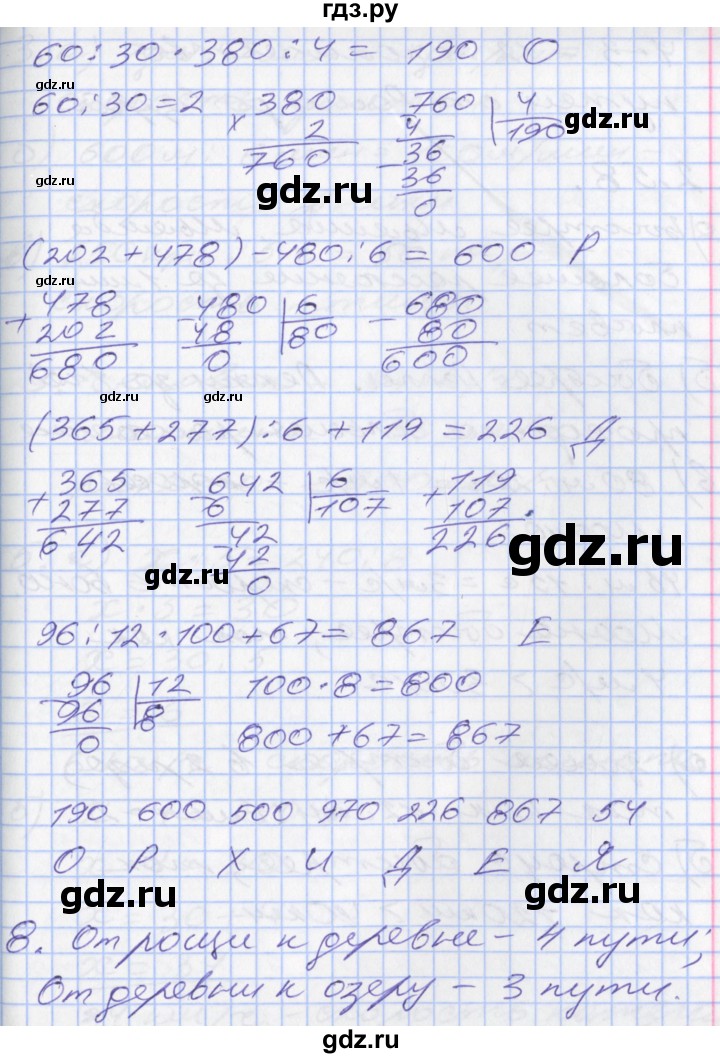 гдз.ру
60:30·380:4= 190 О
gdz.ru
60:30=2 380 760 4
× 2 4 190
760 36
36
0
gdz.ru
gdz.ru
gdz.ru
(202+478)-480:6=600 Р
gdz.ru
+478 -480 6 -680
202 48 80 80
680 0 600
gdz.ru
gdz.ru
(365+277):6+119=226 Д
+365 -642 6 +119
277 6 107 107.
642 -42 226
42
0
gdz.ru
gdz.ru
96:12·100+67= 867 Е
-96 12 100·8=800
96 8
0 800+67=867
190 600 500 970 226 867 54
О Р Х И Д Е Я
gdz.ru
gdz.ru
8. От рощи к деревне – 4 пути;
От деревни к озеру – 3 пути.
gdz.ru
gdz.ru